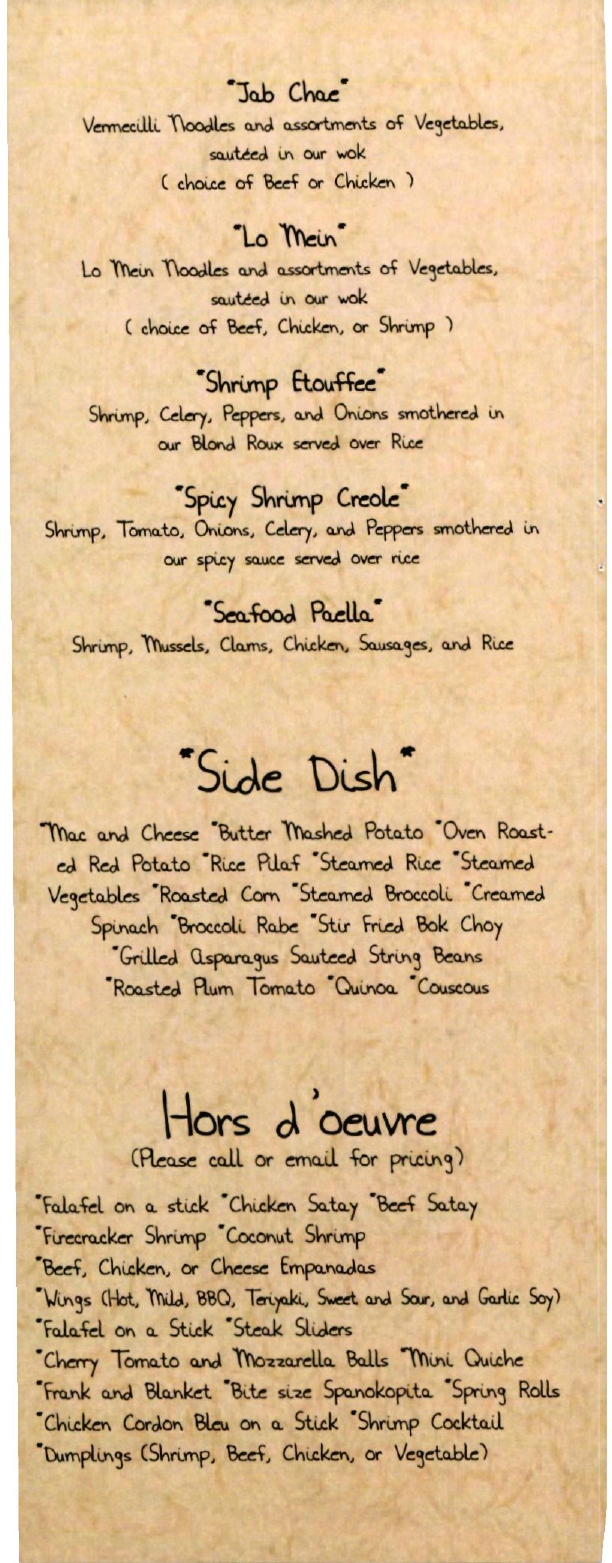 "Jab Chae"
Vermecilli Noodles and assortments of Vegetables,
sautéed in our wok
( choice of Beef or Chicken )
"Lo Mein"
Lo Mein Noodles and assortments of Vegetables,
sautéed in our wok
( choice of Beef, Chicken, or Shrimp )
"Shrimp Etouffee"
Shrimp, Celery, Peppers, and Onions smothered in
our Blond Roux served over Rice
"Spicy Shrimp Creole"
Shrimp, Tomato, Onions, Celery, and Peppers smothered in
our spicy sauce served over rice
"Seafood Paella"
Shrimp, Mussels, Clams, Chicken, Sausages, and Rice
"Side Dish"
*Mac and Cheese *Butter Mashed Potato *Oven Roast-
ed Red Potato *Rice Pilaf *Steamed Rice *Steamed
Vegetables *Roasted Corn *Steamed Broccoli *Creamed
Spinach *Broccoli Rabe *Stir Fried Bok Choy
*Grilled Asparagus Sauteed String Beans
*Roasted Plum Tomato *Quinoa *Couscous
Hors d'oeuvre
(Please call or email for pricing)
*Falafel on a stick *Chicken Satay *Beef Satay
*Firecracker Shrimp *Coconut Shrimp
*Beef, Chicken, or Cheese Empanadas
*Wings (Hot, Mild, BBQ, Teriyaki, Sweet and Sour, and Garlic Soy)
*Falafel on a Stick *Steak Sliders
*Cherry Tomato and Mozzarella Balls *Mini Quiche
*Frank and Blanket *Bite size Spanokopita *Spring Rolls
*Chicken Cordon Bleu on a Stick *Shrimp Cocktail
*Dumplings (Shrimp, Beef, Chicken, or Vegetable)